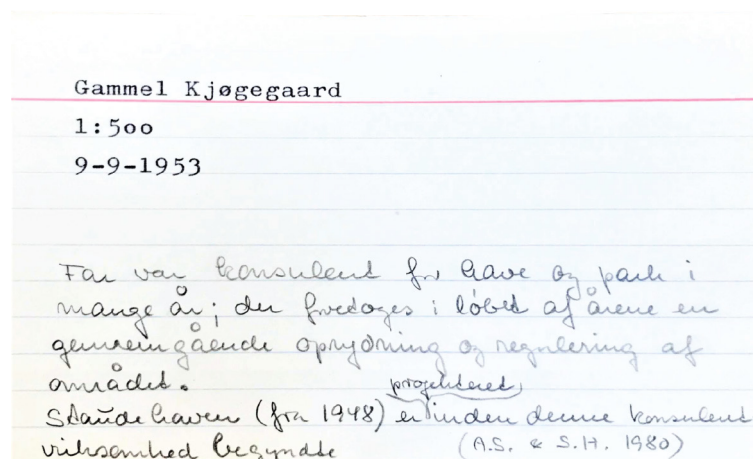 Gammel Kjøgegaard
1:5oo
9-9-1953
Far var konsulent for have og park i
mange år; der foretoges i løbet af årene en
gennemgående oprydning og regulering af
området.
projekteret
Staudehaven (fra 1948) er inden denne konsulent
virksomhed begyndte (A.S. & S.H. 1980)